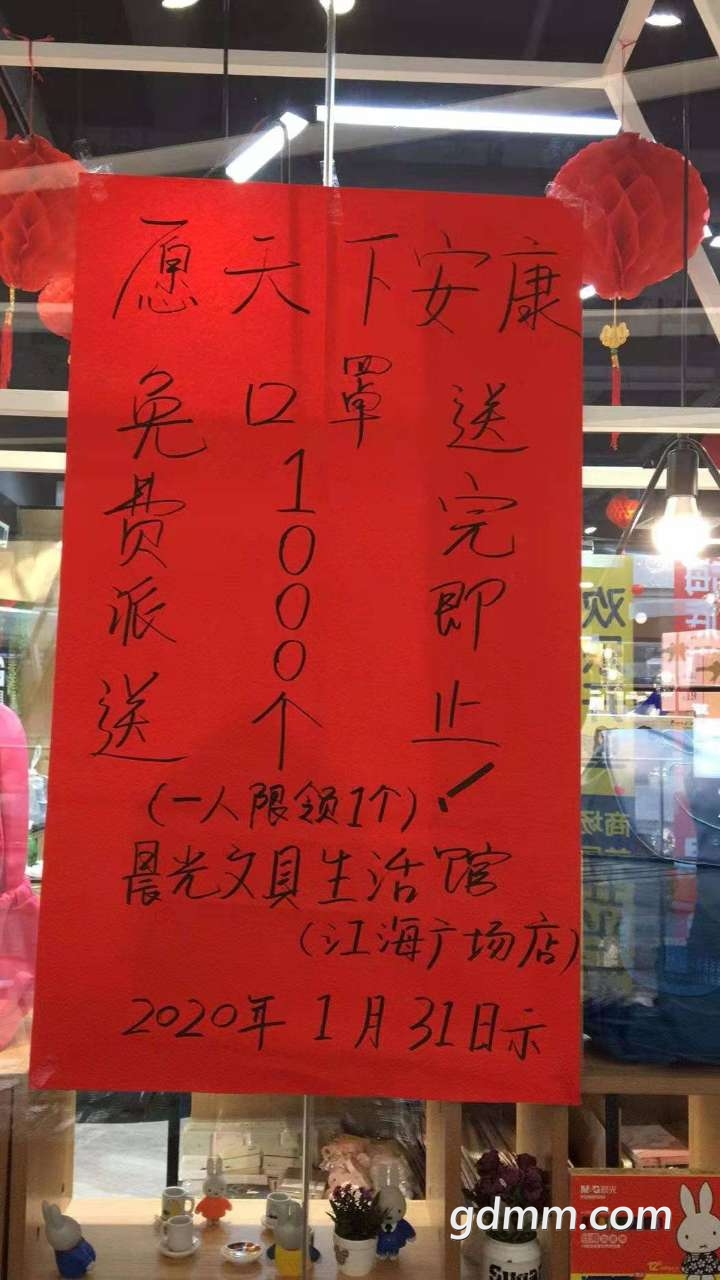 愿天下安康
免费派送
口罩
1000个
送完即止
(一人限领1个)
晨光文具生活馆
(江海广场店)
2020年1月31日示
欢
商场
M&G晨光
Sugar
gdmm.com